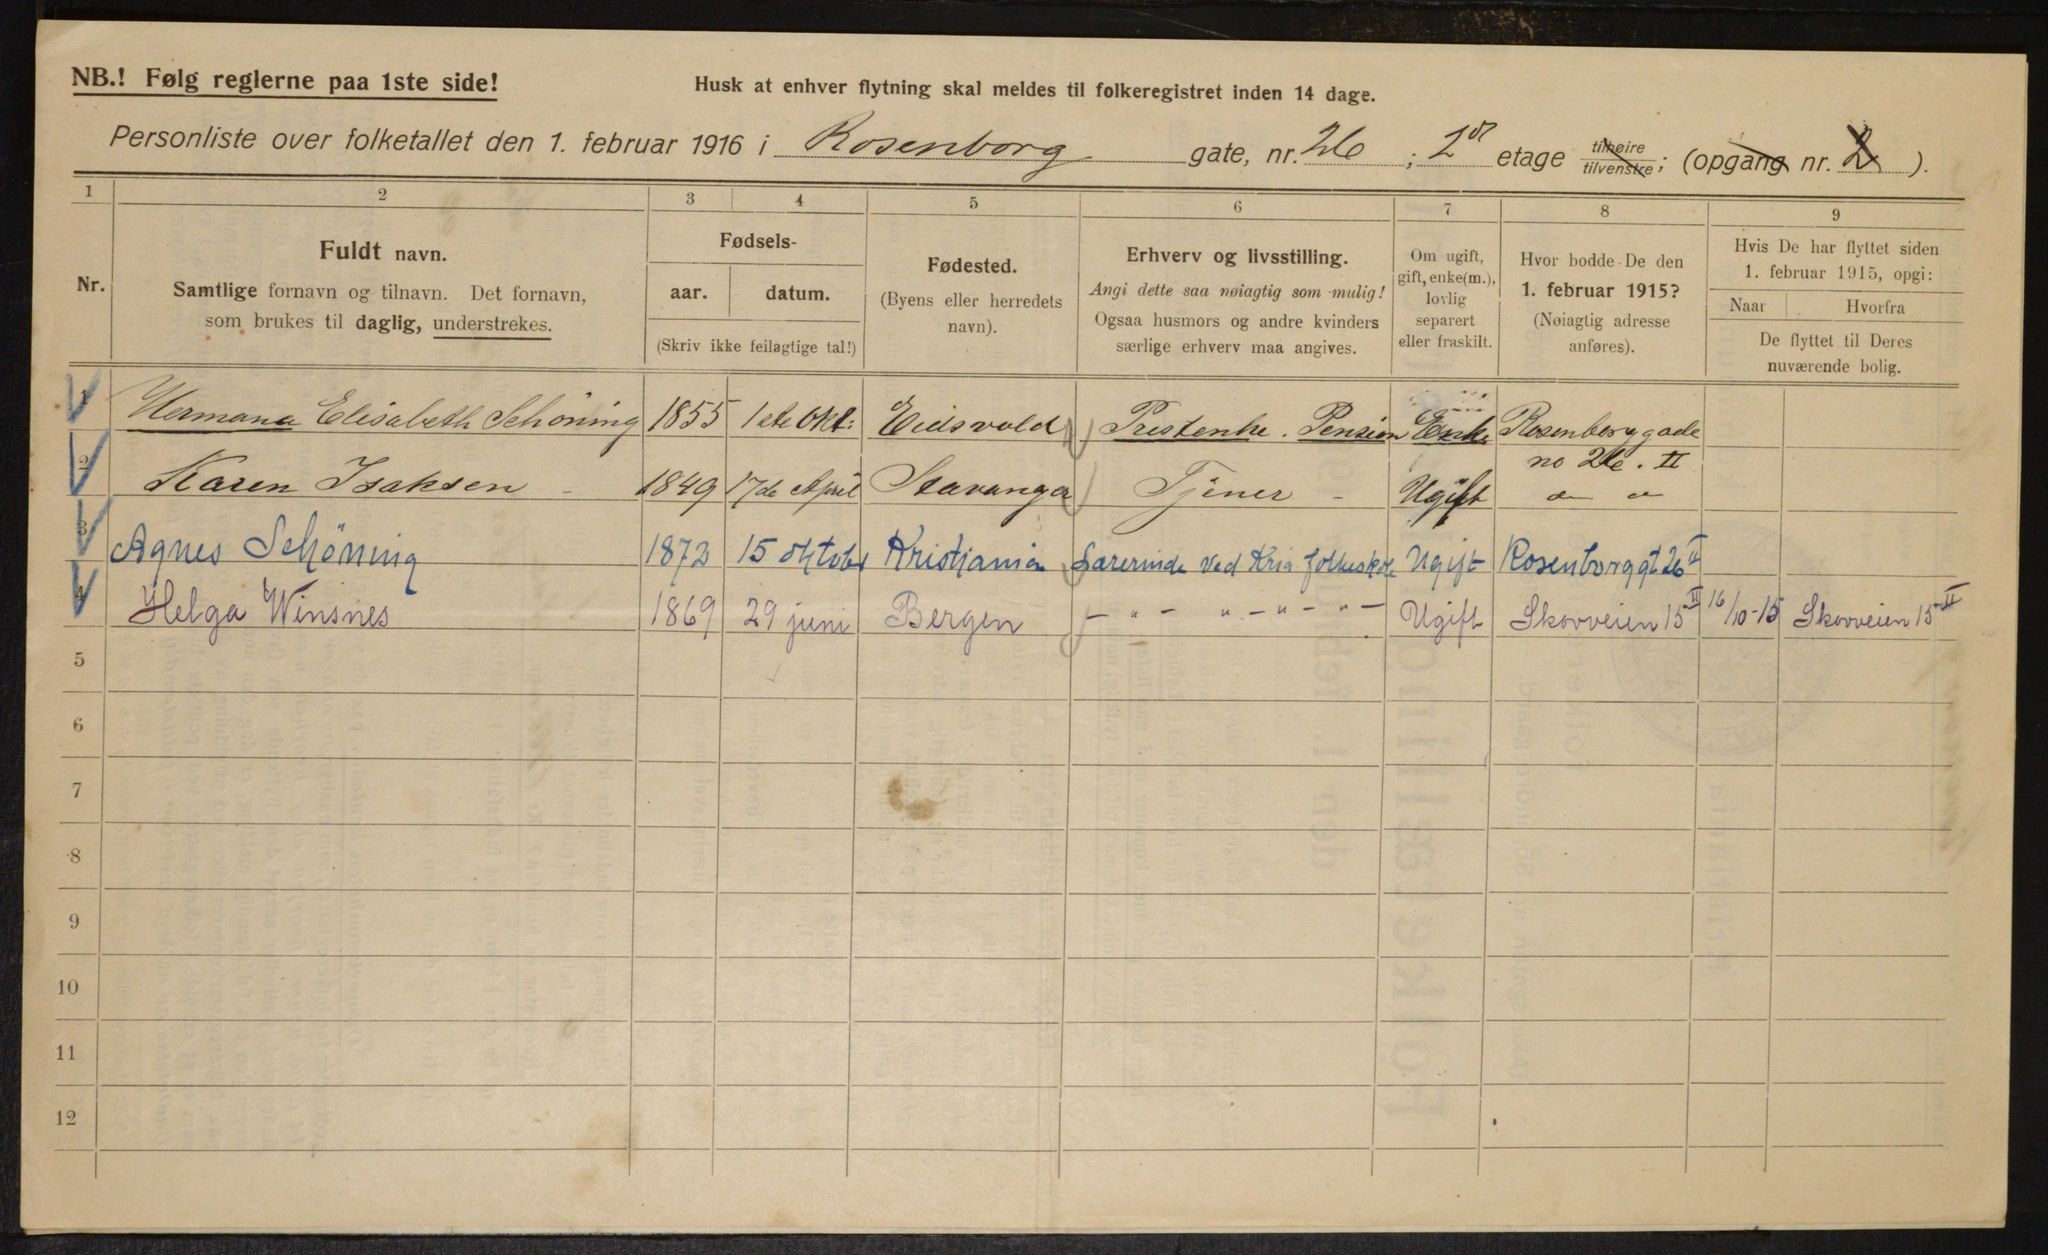 NB.! Følg reglerne paa 1ste side!
Husk at enhver flytning skal meldes til folkeregistret inden 14 dage.
Personliste over folketallet den 1. februar 1916 i Rosenborg gate, nr. 26 ; 2 etage tilhøire tilvenstre; (opgang nr. 2 ).
1 2 3 4 5 6 7 8 9
Nr.
Fuldt navn.
Samtlige fornavn og tilnavn. Det fornavn,
som brukes til daglig, understrekes.
Fødsels-
aar. datum.
(Skriv ikke feilagtige tal!)
Fødested.
(Byens eller herredets
navn).
Erhverv og livsstilling.
Angi dette saa nøiagtig som mulig!
Ogsaa husmors og andre kvinders
særlige erhverv maa angives.
Om ugift,
gift, enke(m.),
lovlig
separert
eller fraskilt.
Hvor bodde De den
1. februar 1915?
(Nøiagtig adresse
anføres).
Hvis De har flyttet siden
1. februar 1915, opgi:
Naar Hvorfra
De flyttet til Deres
nuværende bolig.
1 Hermana Elisabeth Schöning 1855 1ste Okt: Eidsvold Prestenke. Pension Enke Rosenborggade
no 26. II
2 Karen Isaksen - 1849 17de April Stavanger Tjener - Ugift " "
3 Agnes Schöning 1872 15 oktober Kristiania Lærerinde ved Kria folkeskole Ugift Rosenborggt 26 II
4 Helga Winsnes 1869 29 juni Bergen - " - " - " - " - Ugift Skovveien 15 II 16/10-15 Skovveien 15 II
5
6
7
8
9
10
11
12